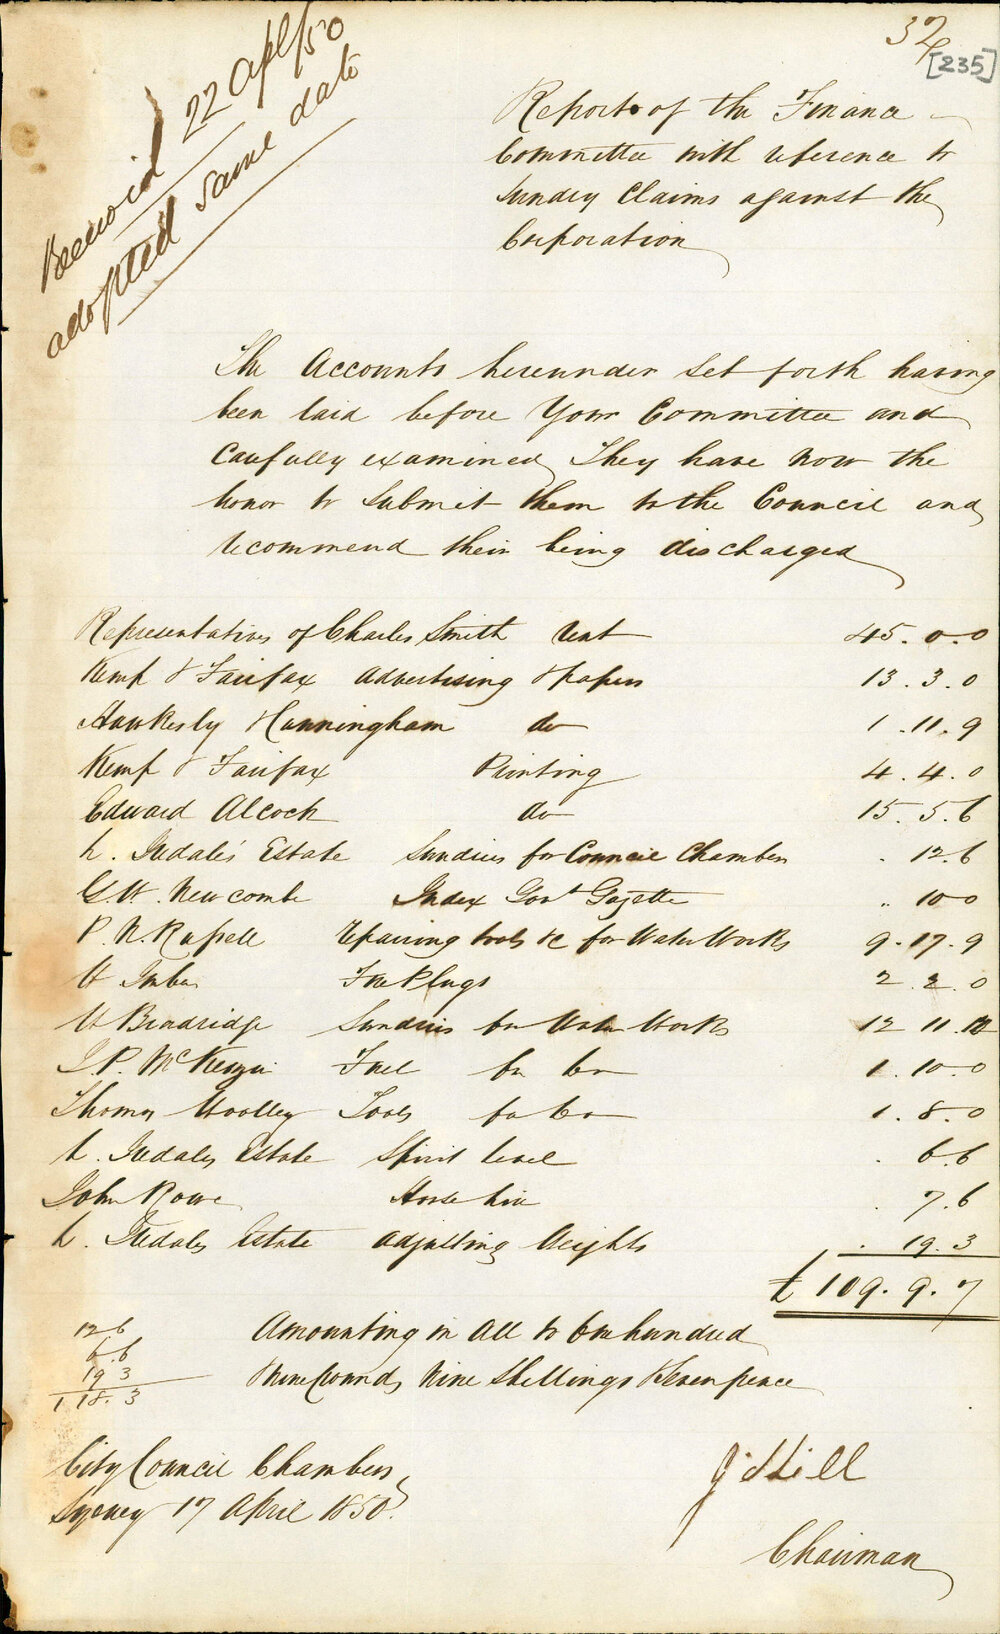 32
[235]
Received 22 Apl/50
adopted same date
Report of the Finance
Committee with reference to
Sundry Claims against the
Corporation
The Accounts hereunder set forth having
been laid before Your Committee and
carefully examined They have now the
honor to submit them to the Council and
recommend their being discharged
Representatives of Charles Smith rent 45.0.0
Kemp & Fairfax advertising & papers 13.3.0
Hawkesly & Cunningham do 1.11.9
Kemp & Fairfax Printing 4.4.0
Edward Alcock do 15.5.6
L. Iredale's Estate Sundries for Council Chamber . 12.6
G W. Newcombe Index Govt Gazette .. 10 0
P. N. Russell repairing tools &c for Water Works 9.17.9
Fire Plugs 2.2.0
W Brodridge Sundries for Water Works 12 11. 10
J. P. McKenzie Fuel for Do 1.10.0
Thomas Woolley Tools for Do 1.8.0
L. Iredales Estate Spirit level . 6.6
John Rowe Horse hire . 7.6
L. Iredales Estate adjusting Weights . 19.3
£109.9.7
Amounting in all to One hundred
Nine Pounds Nine Shillings & Seven pence
12 6
6.6
19 3
1.18.3
City Council Chambers
Sydney 17 April 1850.
J. Hill
Chairman